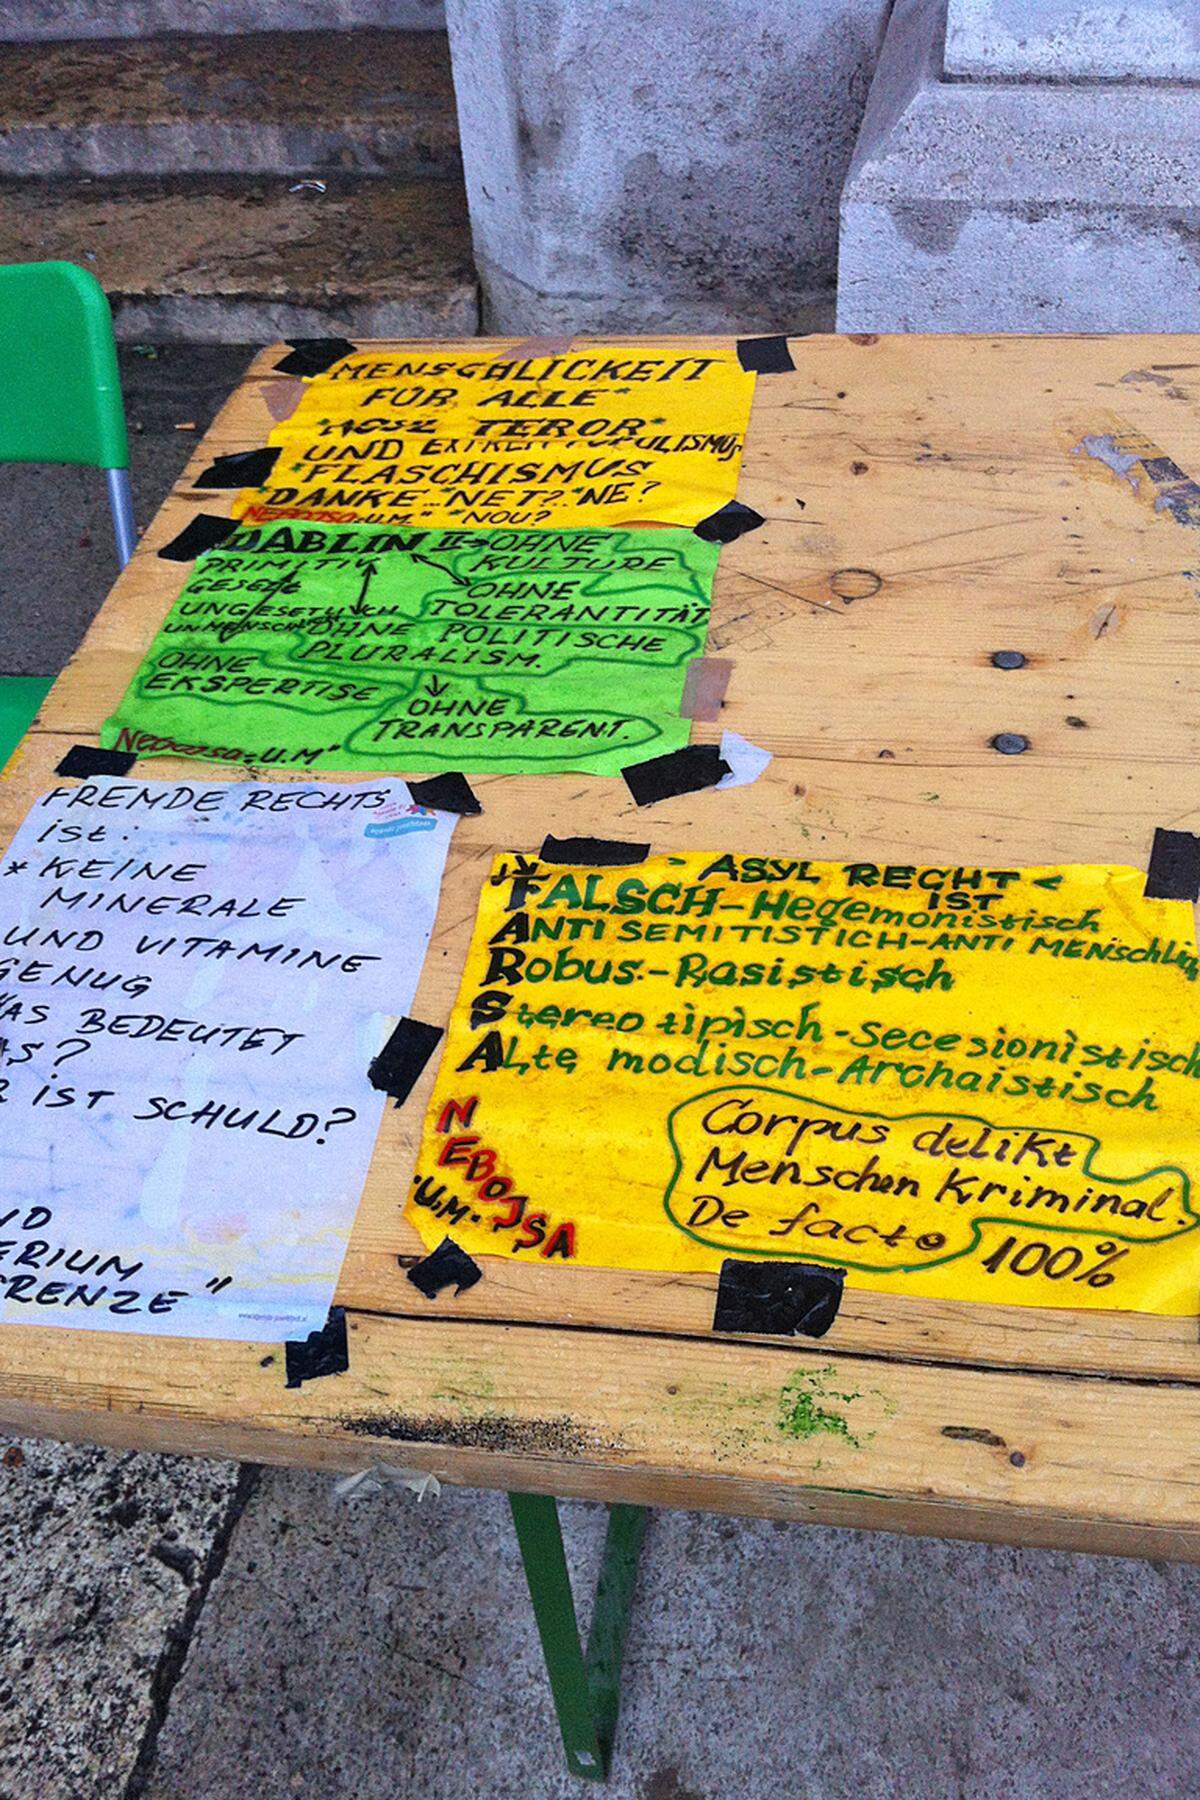 MENSCHLICKEIT
FÜR ALLE"
TEROR"
UND POPULISMUS
"FLASCHISMUS
"DANKE..."NET?."NE?
NEBOJSA "U.M." "NOU?
DABLIN II → OHNE
KULTURE
PRIMITIV
GESETZ
OHNE
TOLERANTITÄT
UNGESETZLICH
UNMENSCHLICH
OHNE POLITISCHE
PLURALISM.
OHNE
EKSPERTISE
OHNE
TRANSPARENT.
NEBOJSA "U.M"
FREMDE RECHTS
ist:
* KEINE
MINERALE
UND VITAMINE
GENUG
WAS BEDEUTET
AS?
R IST SCHULD?
ND
ERIUM
GRENZE"
> ASYL RECHT <
IST
FALSCH-Hegemonistisch
ANTISEMITISTICH-ANTI MENSchlig
Robus-Rasistisch
Stereotipisch-Secesionistisch
ALte modisch-Archaistisch
Corpus delikt
Menschen Kriminal.
De facto 100%
NEBOJSA
"U.M."